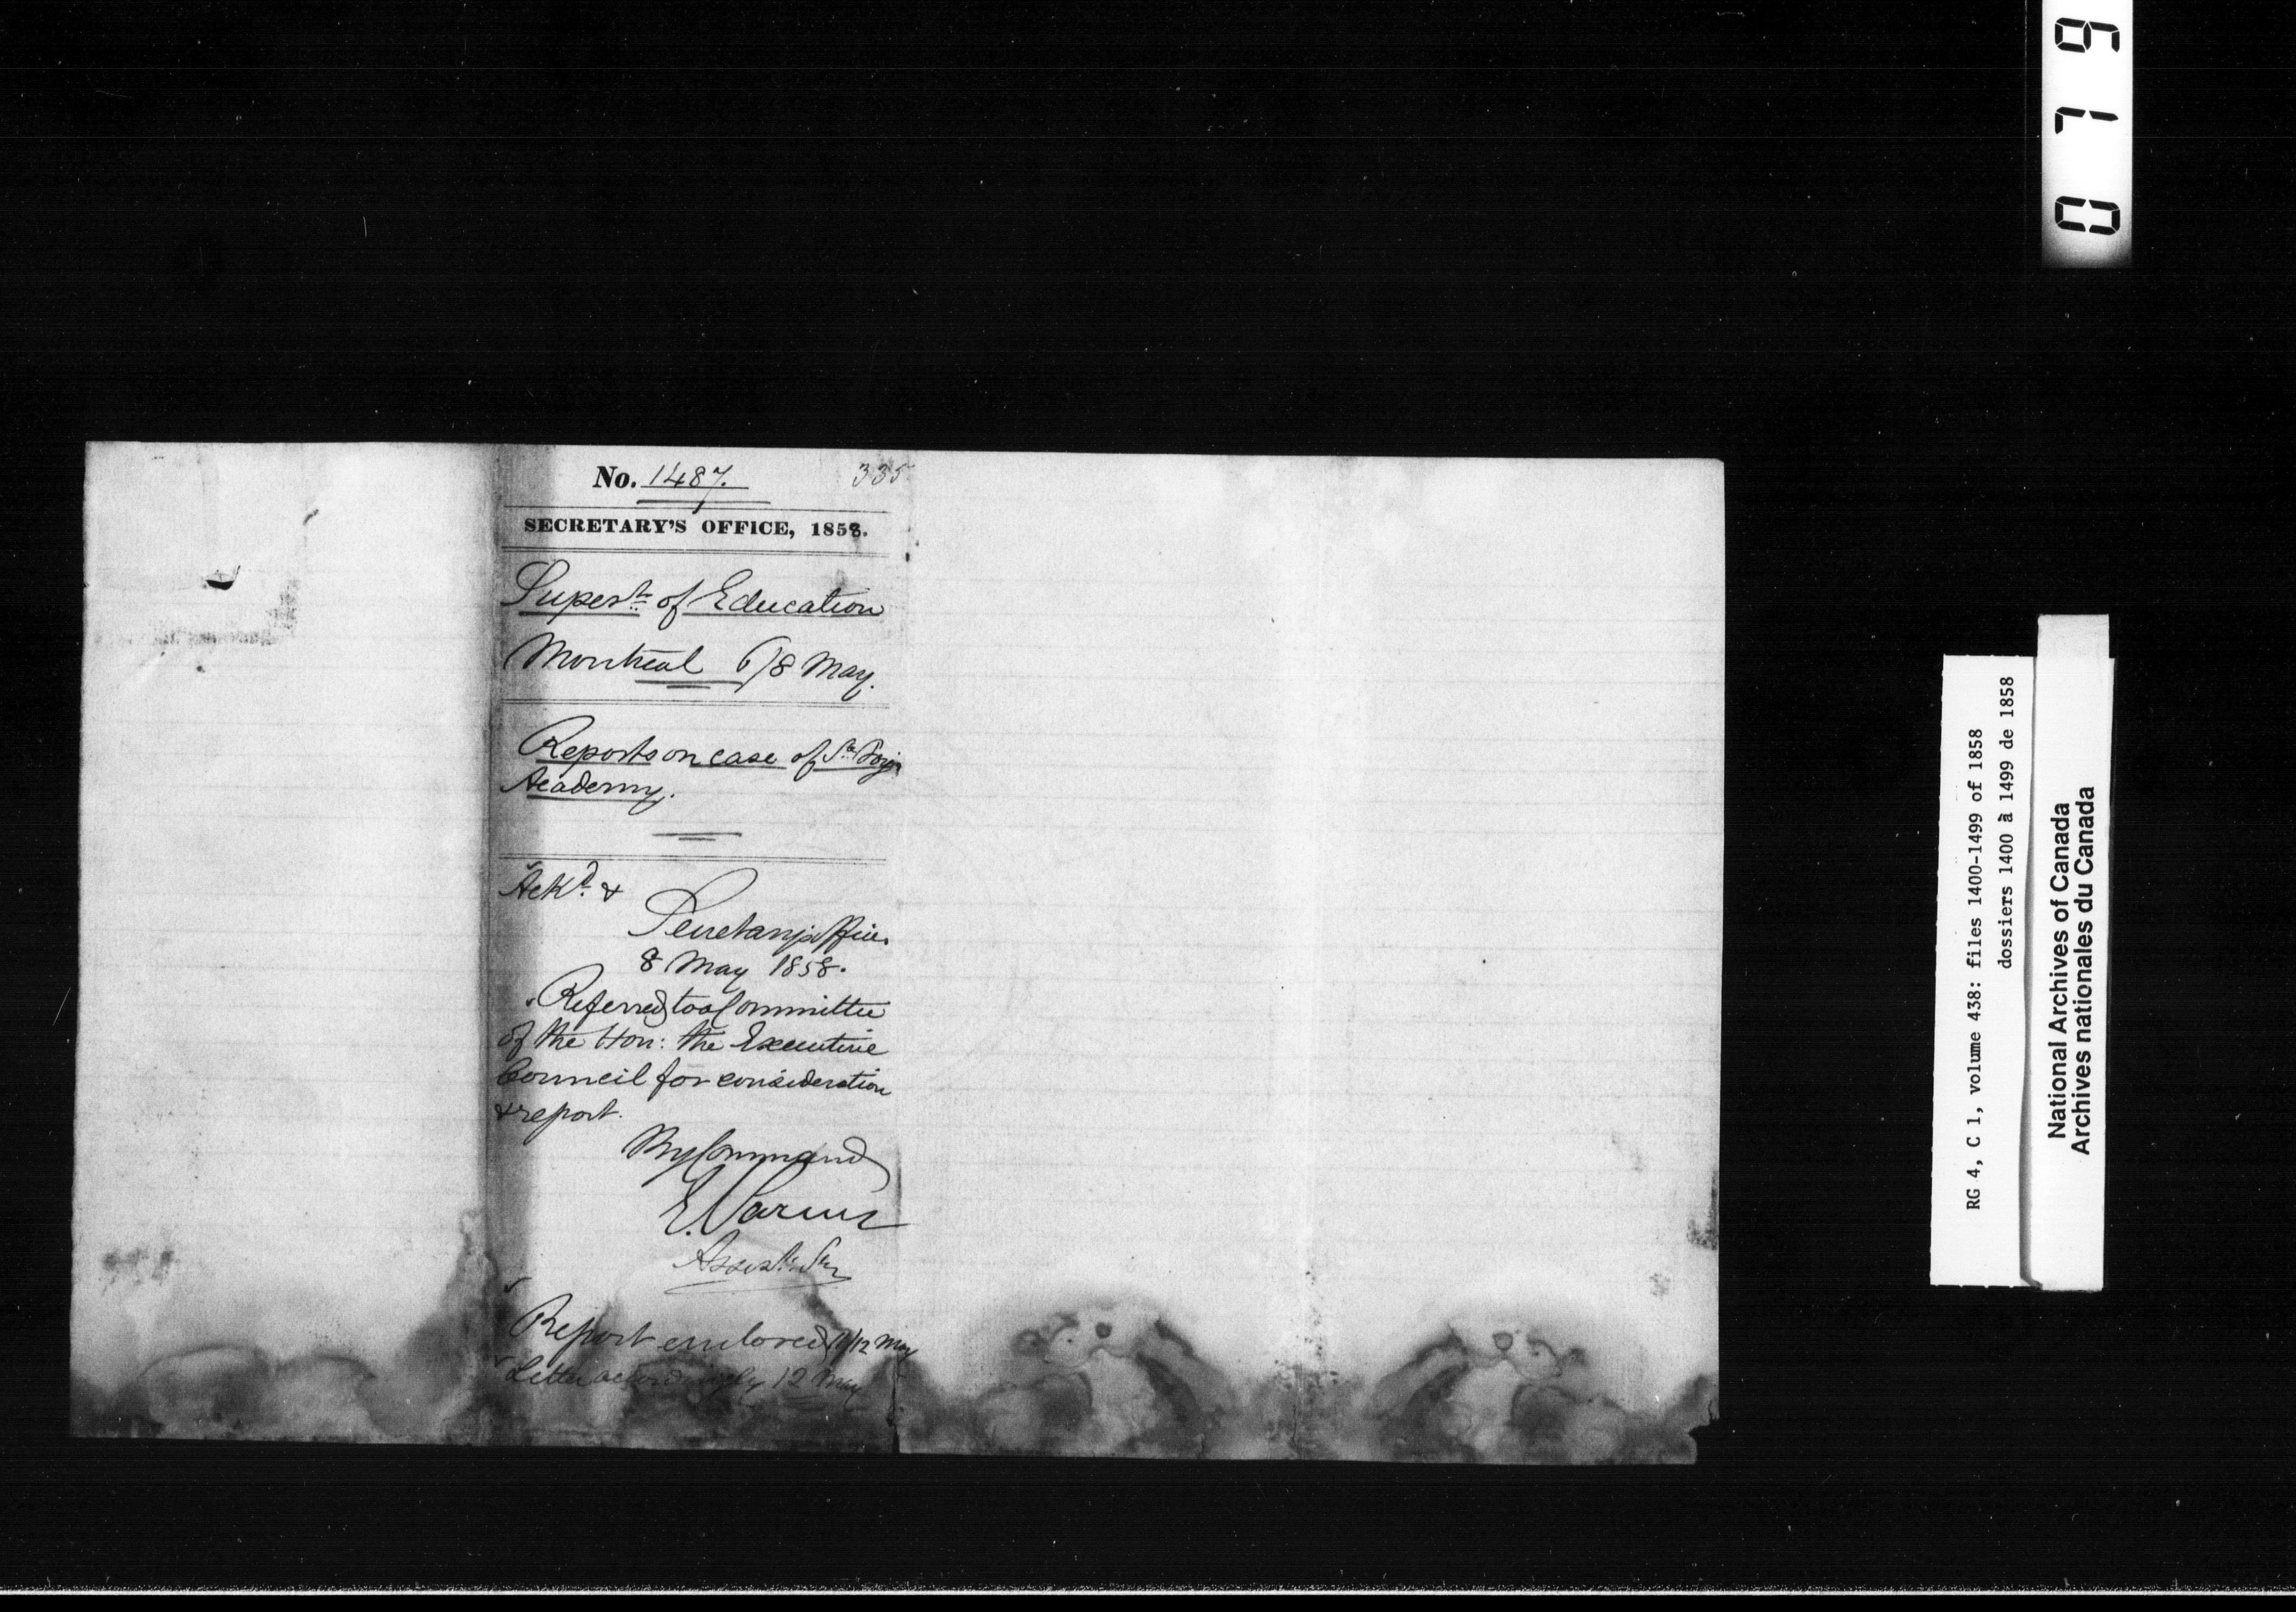 No. 1487. 335
SECRETARY'S OFFICE, 1858.
Supert. of Education
Montreal 6/8 May.
Reports on case of St.
Academy.
Ackd. &
Secretary's Office
8 May 1858.
Referred to a Committee
of the Hon: the Executive
Council for consideration
& report.
By Command
E. Parent
Assist. Sec
Report enclosed 11/12 May
Letter accordingly 12 May
0719
RG 4, C 1, volume 438: files 1400-1499 of 1858
dossiers 1400 à 1499 de 1858
National Archives of Canada
Archives nationales du Canada